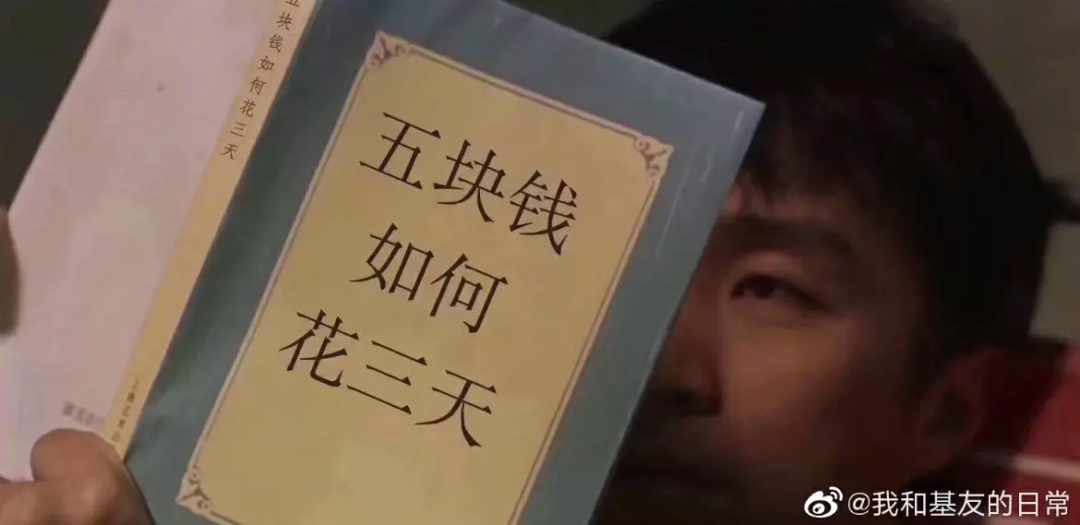 五块钱如何花三天
五块钱
如何
花三天
@我和基友的日常